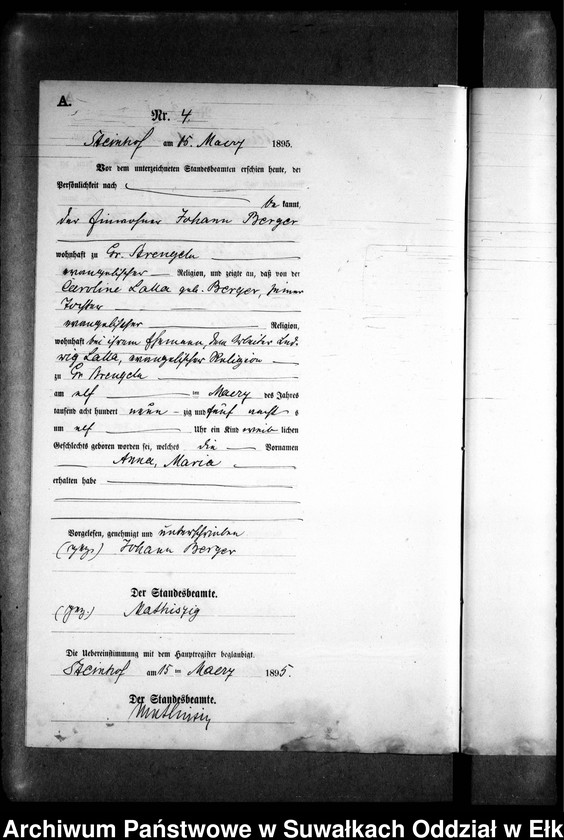 A.
Nr. 4
Steinhof am 15. Maerz 1895.
Vor dem unterzeichneten Standesbeamten erschien heute, der
Persönlichkeit nach
be kannt,
der Einwohner Johann Berger
wohnhaft zu Gr. Strengeln
evangelischer Religion, und zeigte an, daß von der
Caroline Lalla geb. Berger, seiner
Tochter
evangelischer Religion,
wohnhaft bei ihrem Ehemann, dem Arbeiter Lud-
wig Lalla, evangelischer Religion
zu Gr Strengeln
am elf ten Maerz des Jahres
tausend acht hundert neun - zig und fünf nachts
um elf Uhr ein Kind weib lichen
Geschlechts geboren worden sei, welches die Vornamen
Anna, Maria
erhalten habe
Vorgelesen, genehmigt und unterschrieben
(gez.) Johann Berger
Der Standesbeamte.
(gez.) Mathiszig
Die Uebereinstimmung mit dem Hauptregister beglaubigt.
Steinhof am 15 ten Maerz 1895.
Der Standesbeamte.
Mathiszig
Archiwum Państwowe w Suwałkach Oddział w Ełk